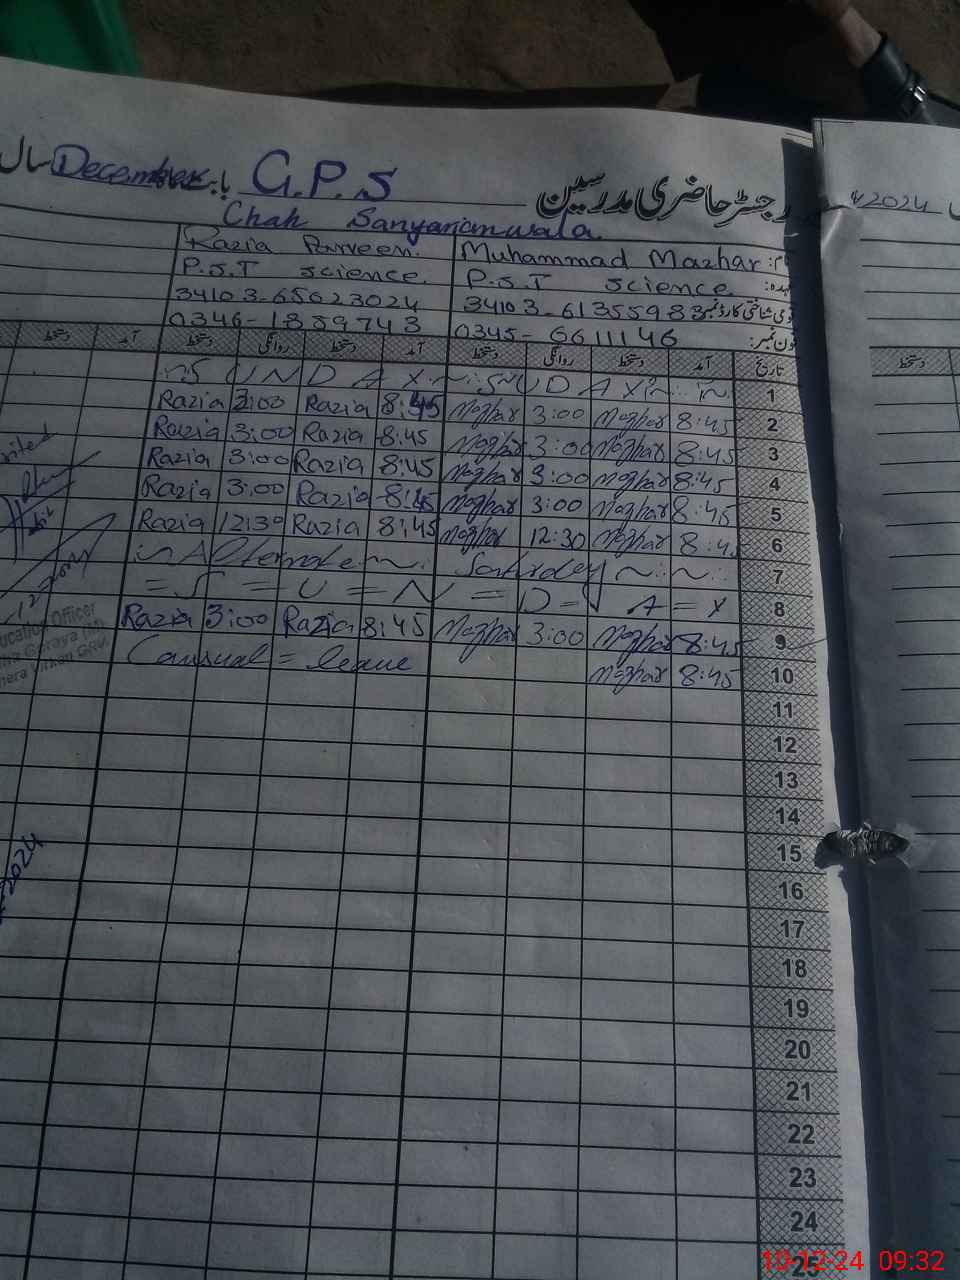 رجسٹر حاضری مدرسین G.P.S بابت ماہ December سال
Chah Sanyarianwala
2024
نام: Muhammad Mazhar Razia Parveen.
عہدہ: P.S.T science P.S.T science
قومی شناختی کارڈ نمبر 34103-61355983 34103-65023024
فون نمبر: 0345-6611146 0346-1889743
تاریخ آمد دستخط روانگی دستخط آمد دستخط روانگی دستخط آمد دستخط
1 SUNDAY SUNDAY
2 8:45 Mazhar 3:00 Mazhar 8:45 Razia 3:00 Razia
3 8:45 Mazhar 3:00 Mazhar 8:45 Razia 3:00 Razia
4 8:45 Mazhar 3:00 Mazhar 8:45 Razia 3:00 Razia
5 8:45 Mazhar 3:00 Mazhar 8:45 Razia 3:00 Razia
6 8:45 Mazhar 12:30 Mazhar 8:45 Razia 12:30 Razia
7 Alternate Saturday
8 = S = U = N = D = A = Y
9 8:45 Mazhar 3:00 Mazhar 8:45 Razia 3:00 Razia
10 8:45 Mazhar Causual = leave
11
12
13
14
15
16
17
18
19
20
21
22
23
24
25
2024
10-12-24 09:32